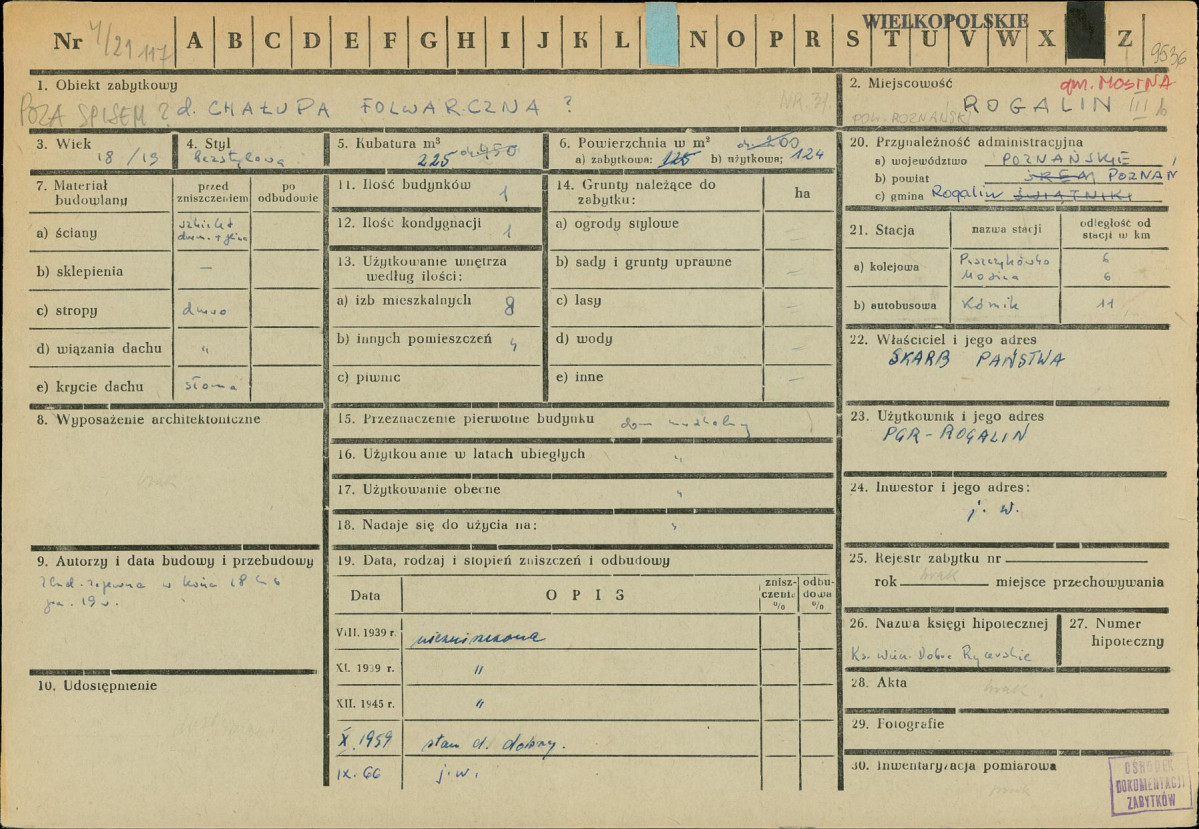 Nr 4/21 117 A B C D E F G H I J K L N O P R S T U V W X Z
WIELKOPOLSKIE
9536
1. Obiekt zabytkowy
POZA SPISEM ? d. CHAŁUPA FOLWARCZNA ?
NR. 31.
2. Miejscowość
gm. MOSINA
ROGALIN III b
POW. POZNAŃSKI
3. Wiek
18/19
4. Styl
bezstylowa
5. Kubatura m³
225 450
6. Powierzchnia w m² 200
a) zabytkowa: 125 b) użytkowa; 124
7. Materiał budowlany
przed zniszczeniem
po odbudowie
a) ściany
szkielet
drewn. + glina
b) sklepienia —
c) stropy drewno
d) wiązania dachu "
e) krycie dachu słoma
8. Wyposażenie architektoniczne
brak
9. Autorzy i data budowy i przebudowy
w końcu 18 lub
19 w.
10. Udostępnienie
11. Ilość budynków 1
12. Ilość kondygnacji 1
13. Użytkowanie wnętrza
według ilości:
a) izb mieszkalnych 8
b) innych pomieszczeń 4
c) piwnic
14. Grunty należące do
zabytku:
ha
a) ogrody stylowe —
b) sady i grunty uprawne —
c) lasy —
d) wody —
e) inne —
15. Przeznaczenie pierwotne budynku dom mieszkalny
16. Użytkowanie w latach ubiegłych "
17. Użytkowanie obecne "
18. Nadaje się do użycia na: "
19. Data, rodzaj i stopień zniszczeń i odbudowy
Data
OPIS
znisz-
czenia
%
odbu-
dowa
%
VIII. 1939 r. niezniszczona
XI. 1939 r. "
XII. 1945 r. "
X. 1959 stan d. dobry.
IX. 66 j. w.
20. Przynależność administracyjna
a) województwo POZNAŃSKIE
b) powiat ŚREM POZNAŃ
c) gmina Rogalin ŚWIĄTNIKI
21. Stacja
nazwa stacji
odległość od
stacji w km
a) kolejowa Puszczykówko 6
Mosina 6
b) autobusowa Kórnik 11
22. Właściciel i jego adres
SKARB PAŃSTWA
23. Użytkownik i jego adres
PGR - ROGALIN
24. Inwestor i jego adres:
j. w.
25. Rejestr zabytku nr
rok brak miejsce przechowywania
26. Nazwa księgi hipotecznej
Ks. wiecz. Dobra Rycerskie
27. Numer
hipoteczny
28. Akta
brak
29. Fotografie
30. Inwentaryzacja pomiarowa
brak
OŚRODEK
DOKUMENTACJI
ZABYTKÓW